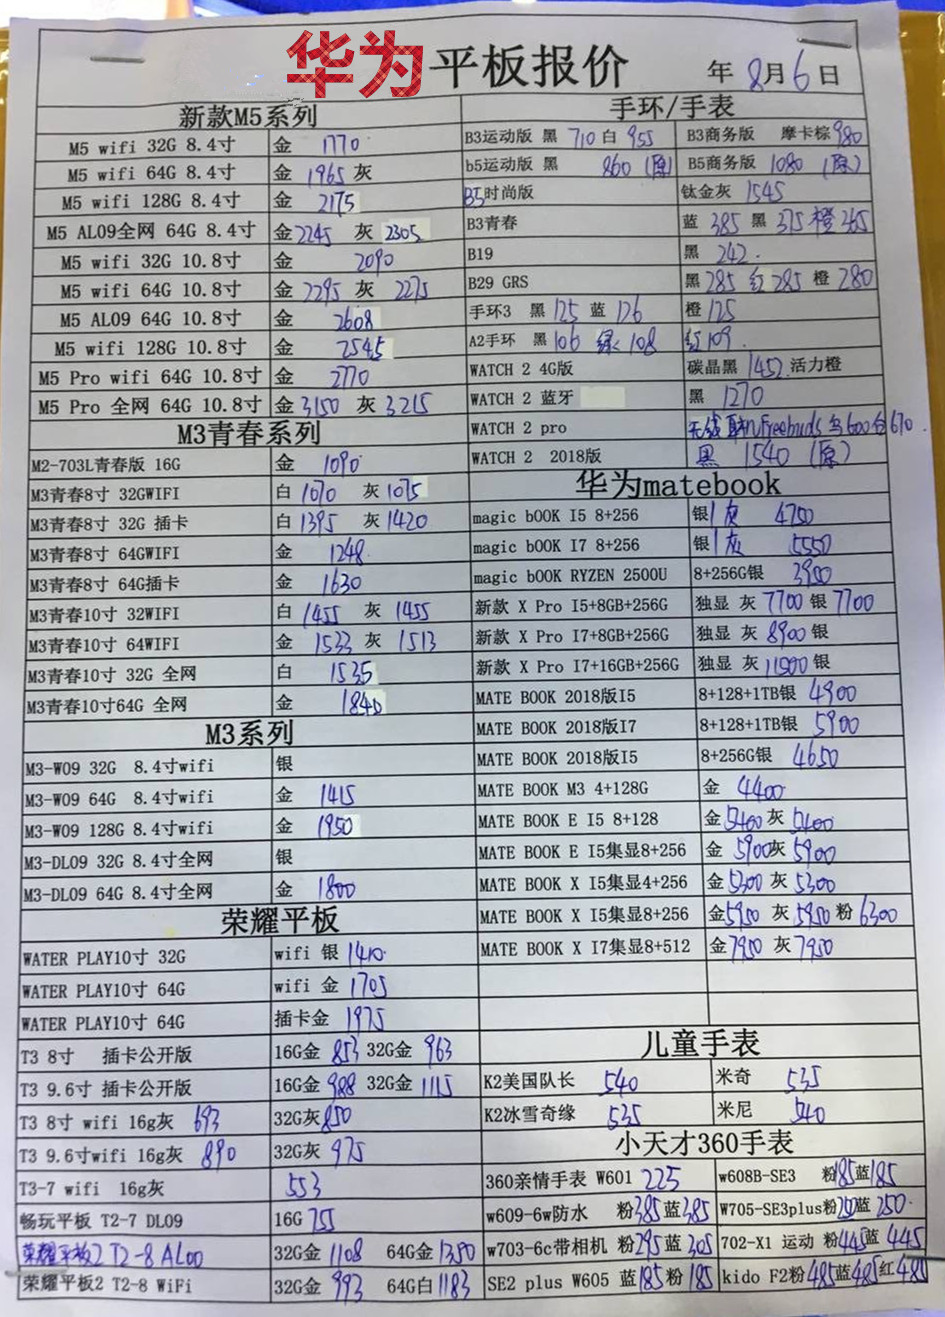 华为平板报价 年 8月6日
新款M5系列
M5 wifi 32G 8.4寸 金 1770
M5 wifi 64G 8.4寸 金 1965 灰
M5 wifi 128G 8.4寸 金 2175
M5 AL09全网 64G 8.4寸 金2245 灰 2305
M5 wifi 32G 10.8寸 金 2090
M5 wifi 64G 10.8寸 金 2295 灰 2275
M5 AL09 64G 10.8寸 金 2608
M5 wifi 128G 10.8寸 金 2545
M5 Pro wifi 64G 10.8寸 金 2770
M5 Pro 全网 64G 10.8寸 金3150 灰3215
M3青春系列
M2-703L青春版 16G 金 1090
M3青春8寸 32GWIFI 白 1070 灰 1075
M3青春8寸 32G 插卡 白 1395 灰 1420
M3青春8寸 64GWIFI 金 1248
M3青春8寸 64G插卡 金 1630
M3青春10寸 32WIFI 白 1455 灰 1455
M3青春10寸 64WIFI 金 1533 灰 1513
M3青春10寸 32G 全网 白 1535
M3青春10寸64G 全网 金 1840
M3系列
M3-W09 32G 8.4寸wifi 银
M3-W09 64G 8.4寸wifi 金 1415
M3-W09 128G 8.4寸wifi 金 1950
M3-DL09 32G 8.4寸全网 银
M3-DL09 64G 8.4寸全网 金 1800
荣耀平板
WATER PLAY10寸 32G wifi 银 1410
WATER PLAY10寸 64G wifi 金 1705
WATER PLAY10寸 64G 插卡金 1975
T3 8寸 插卡公开版 16G金 853 32G金 963
T3 9.6寸 插卡公开版 16G金 988 32G金 1115
T3 8寸 wifi 16g灰 693 32G灰850
T3 9.6寸wifi 16g灰 890 32G灰 975
T3-7 wifi 16g灰 553
畅玩平板 T2-7 DL09 16G 755
荣耀平板2 T2-8 AL00 32G金 1108 64G金1350
荣耀平板2 T2-8 WiFi 32G金 993 64G白1183
手环/手表
B3运动版 黑 710 白 955 B3商务版 摩卡棕980
b5运动版 黑 860 (原) B5商务版 1080 (原)
B5时尚版 钛金灰 1545
B3青春 蓝 385 黑 375 橙 365
B19 黑 242
B29 GRS 黑 285 红 285 橙 280
手环3 黑 125 蓝 126 橙 125
A2手环 黑 106 绿 108 红109
WATCH 2 4G版 碳晶黑 1452 活力橙
WATCH 2 蓝牙 黑 1270
WATCH 2 pro 无线耳机Freebuds 黑600白670
WATCH 2 2018版 黑 1540 (原)
华为matebook
magic bOOK I5 8+256 银/灰 4750
magic bOOK I7 8+256 银/灰 5550
magic bOOK RYZEN 2500U 8+256G银 3900
新款 X Pro I5+8GB+256G 独显 灰 7700 银 7700
新款 X Pro I7+8GB+256G 独显 灰 8900 银
新款 X Pro I7+16GB+256G 独显 灰 11500 银
MATE BOOK 2018版I5 8+128+1TB银 4900
MATE BOOK 2018版I7 8+128+1TB银 5900
MATE BOOK 2018版I5 8+256G银 4650
MATE BOOK M3 4+128G 金 4400
MATE BOOK E I5 8+128 金5400 灰 5400
MATE BOOK E I5集显8+256 金 5900灰 5900
MATE BOOK X I5集显4+256 金5300 灰 5300
MATE BOOK X I5集显8+256 金5950 灰 5950 粉 6300
MATE BOOK X I7集显8+512 金7950 灰 7950
儿童手表
K2美国队长 540 米奇 535
K2冰雪奇缘 535 米尼 540
小天才360手表
360亲情手表 W601 225 w608B-SE3 粉185蓝185
w609-6w防水 粉385蓝385 W705-SE3plus粉250蓝 250
w703-6c带相机 粉295蓝 305 702-X1 运动 粉445蓝 445
SE2 plus W605 蓝185粉 185 kido F2粉485蓝485红 485